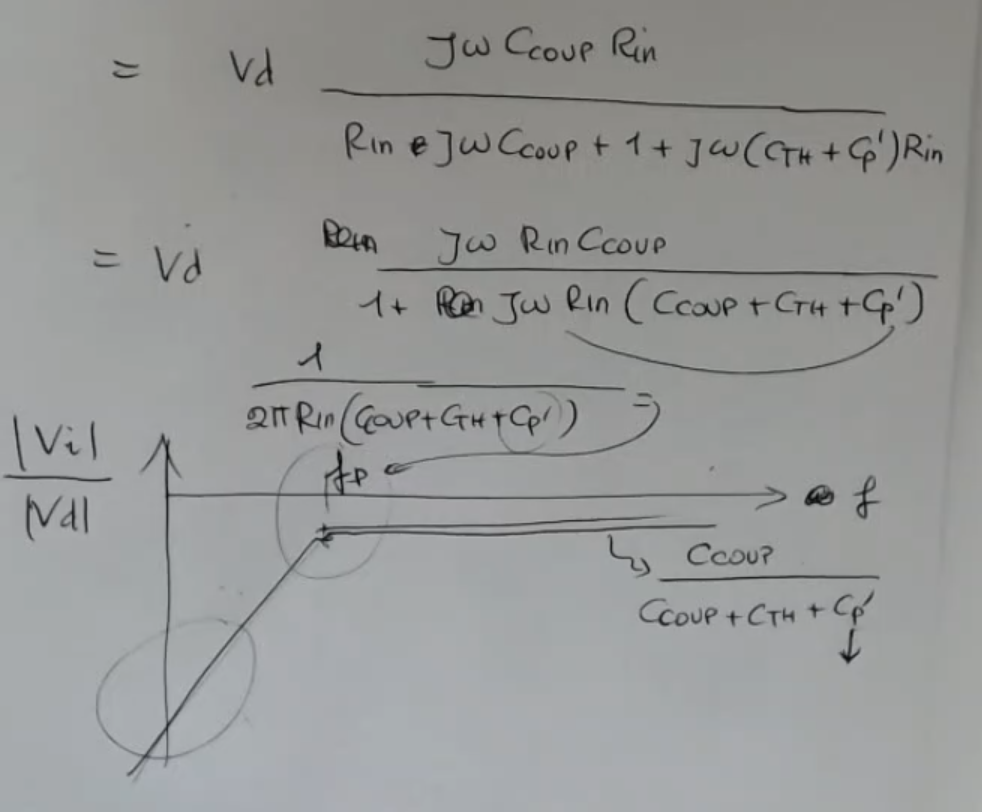 = Vd
Jω Ccoup Rin
Rin Jω Ccoup + 1 + Jω(CTH + Cp')Rin
= Vd
Jω Rin Ccoup
1 + Jω Rin (Ccoup + CTH + Cp')
1
2π Rin (Ccoup + CTH + Cp') =
|Vi|
|Vd|
fp
f
Ccoup
Ccoup + CTH + Cp'